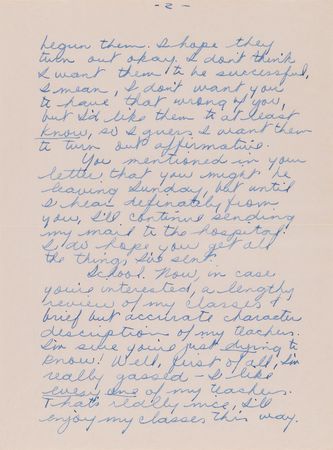 - 2 -
begun them. I hope they
turn out okay. I don't think
I want them to be successful,
I mean, I don't want you
to have that wrong w/ you,
but I'd like them to at least
know, so I guess I want them
to turn out affirmative.
You mentioned in your
letter that you might be
leaving Sunday, but until
I hear definately from
you, I'll continue sending
my mail to the hospital.
I do hope you get all
the things I've sent.
School. Now, in case
you're interested, a lengthy
review of my classes &
brief but accurate character
description of my teachers.
I'm sure you're just dying to
know! Well, first of all, I'm
really gassed - I like
every one of my teachers.
That's really nice, I'll
enjoy my classes this way.